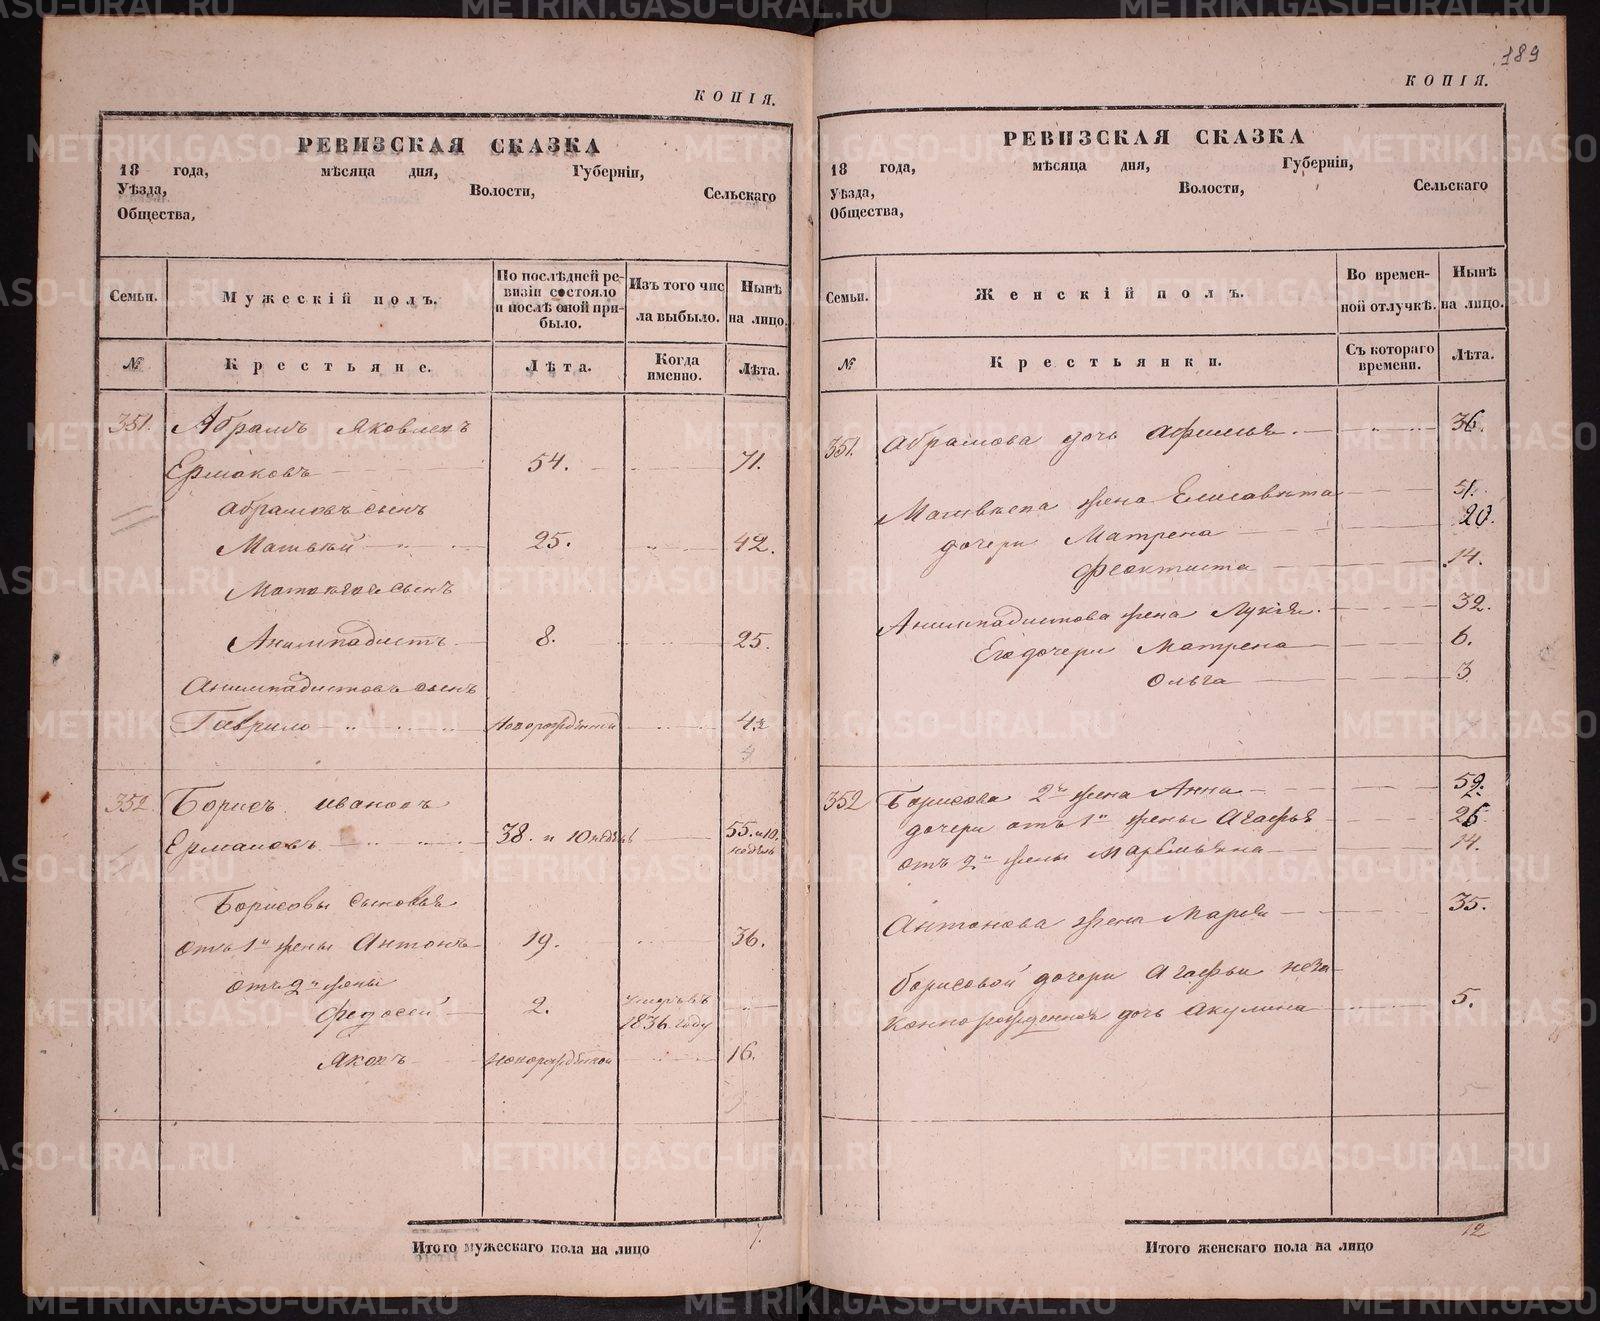 189
КОПІЯ.
РЕВИЗСКАЯ СКАЗКА
18 года, мѣсяца дня, Губерніи,
Уѣзда, Волости, Сельскаго
Общества,
Семьи.
Мужескій полъ.
По послѣдней ре-
визіи состояло
и послѣ оной при-
было.
Изъ того чис
ла выбыло.
Нынѣ
на лицо.
№
Крестьяне.
Лѣта.
Когда
именно.
Лѣта.
351. Абрамъ Яковлевъ
Ермаковъ 54. 71.
Абрамовъ сынъ
Матвѣй 25. 42.
Матвѣя сынъ
Анимпадистъ 8. 25.
Анимпадистовъ сынъ
Гаврило новорожденный
4
352. Борисъ Ивановъ
Ермаковъ 38. и 10 недѣль 55. и 10.
недѣль
Борисовы сыновья
отъ 1й жены Антонъ 19. 36.
отъ 2й жены
Федосей 2. умеръ въ
1836. году
Яковъ новорожденной 16.
Итого мужескаго пола на лицо 7.
КОПІЯ.
РЕВИЗСКАЯ СКАЗКА
18 года, мѣсяца дня, Губерніи,
Уѣзда, Волости, Сельскаго
Общества,
Семьи.
Женскій полъ.
Во времен-
ной отлучкѣ.
Нынѣ
на лицо.
№
Крестьянки.
Съ котораго
времени.
Лѣта.
351. Абрамова дочь Афимья. 36.
Матвѣева жена Елисавѣта 51.
дочери Матрена 20.
Феоктиста 14.
Анимпадистова жена Лукія. 32.
Его дочери Матрена 6.
Ольга 3
352 Борисова 2я жена Анна 59.
дочери отъ 1й жены Агафья 26.
отъ 2й жены Маремьяна 14.
Антонова жена Марья 35.
Борисовой дочери Агафьи неза-
коннорожденная дочь Акулина 5.
5
Итого женскаго пола на лицо 12
METRIKI.GASO-URAL.RU